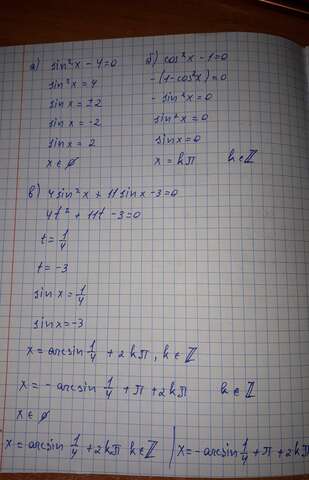 а) sin²x - 4=0
sin²x = 4
sin x = ±2
sin x = -2
sin x = 2
x ∈ ∅
б) cos²x - 1=0
-(1-cos²x)=0
- sin²x = 0
sin²x = 0
sin x = 0
x = kπ k ∈ ℤ
в) 4sin²x + 11sinx - 3=0
4t² + 11t - 3=0
t = 1/4
t = -3
sin x = 1/4
sin x = -3
x = arcsin 1/4 + 2kπ, k ∈ ℤ
x = - arcsin 1/4 + π + 2kπ k ∈ ℤ
x ∈ ∅
x = arcsin 1/4 + 2kπ k ∈ ℤ | x = - arcsin 1/4 + π + 2kπ